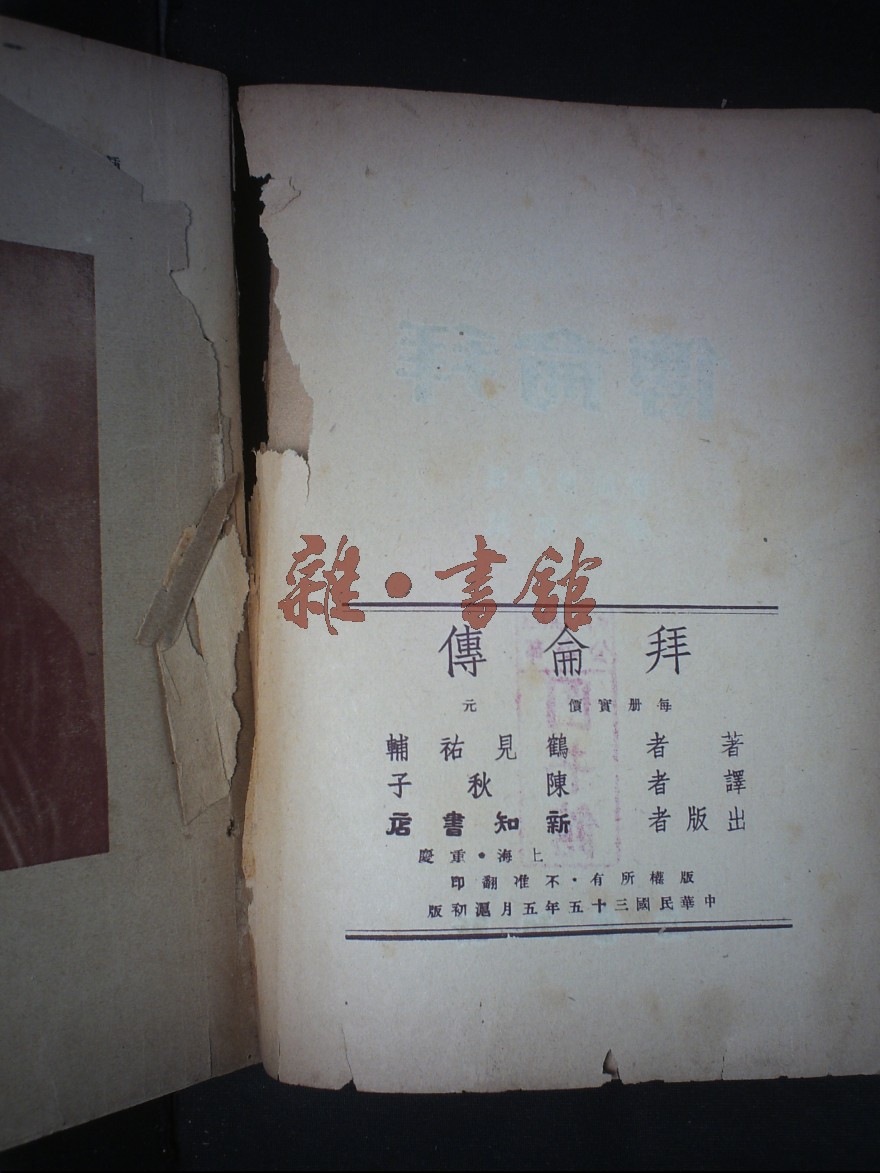 雜・書館
拜侖傳
每册實價　元
著者　鶴見祐輔
譯者　陳秋子
出版者　新知書店
上海・重慶
版權所有・不准翻印
中華民國三十五年五月滬初版